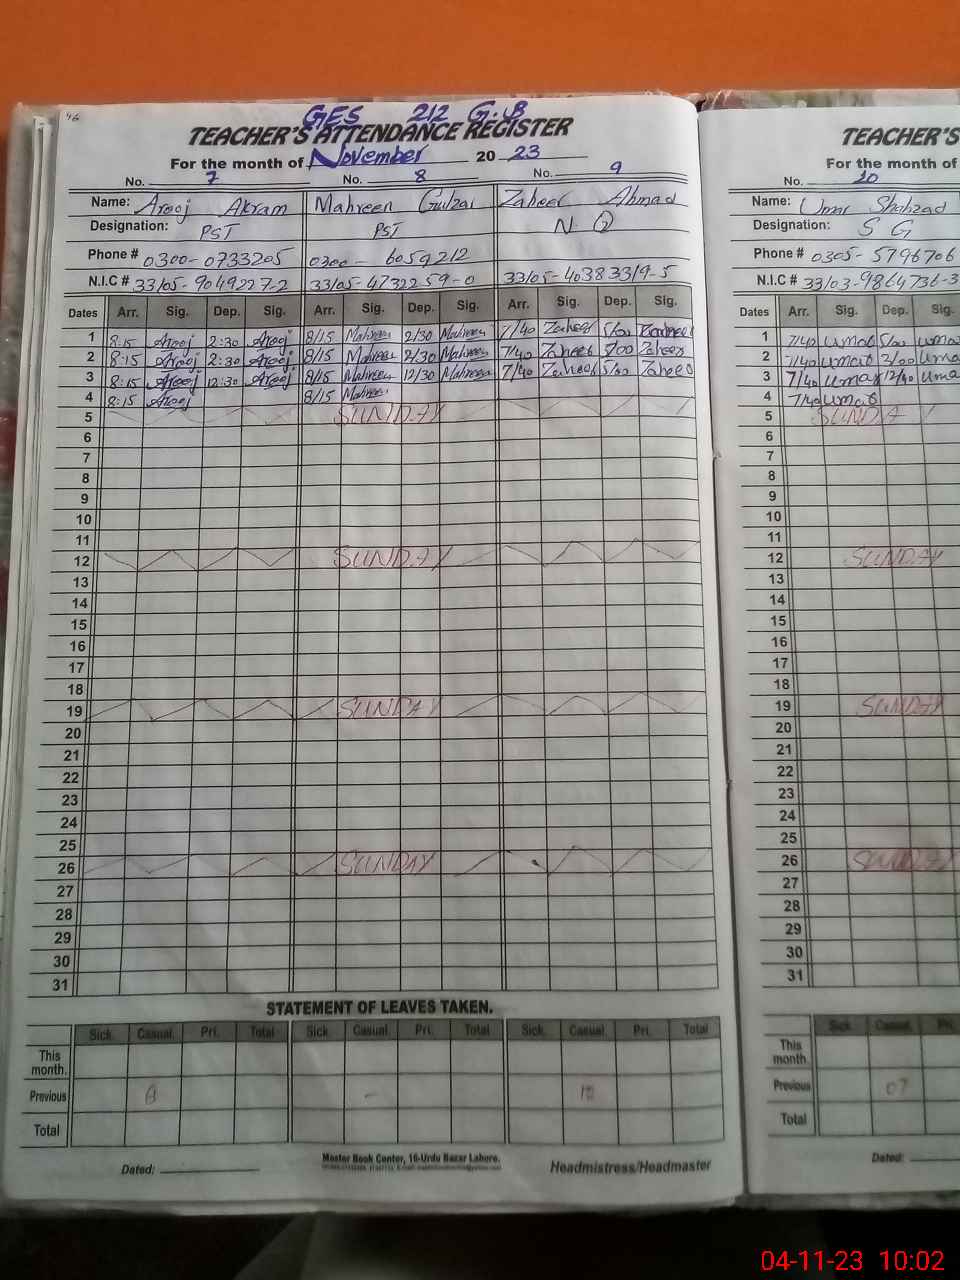 46
GES 212 G.B
TEACHER'S ATTENDANCE REGISTER
For the month of November 20 23
No. 7 No. 8 No. 9
Name: Arooj Akram Mahreen Gulzar Zaheer Ahmad
Designation: PST PST N.Q
Phone # 0300-0733205 0300-6059212
N.I.C # 33105-9049227-2 33105-4732259-0 33105-4038339-5
Dates Arr. Sig. Dep. Sig. Arr. Sig. Dep. Sig. Arr. Sig. Dep. Sig.
1 8:15 Arooj 2:30 Arooj 8/15 Mahreen 2/30 Mahreen 7/40 Zaheer 5/00 Zaheer
2 8:15 Arooj 2:30 Arooj 8/15 Mahreen 2/30 Mahreen 7/40 Zaheer 5/00 Zaheer
3 8:15 Arooj 12:30 Arooj 8/15 Mahreen 12/30 Mahreen 7/40 Zaheer 5/00 Zaheer
4 8:15 Arooj 8/15 Mahreen
5 SUNDAY
6
7
8
9
10
11
12 SUNDAY
13
14
15
16
17
18
19 SUNDAY
20
21
22
23
24
25
26 SUNDAY
27
28
29
30
31
STATEMENT OF LEAVES TAKEN.
Sick. Casual. Pri. Total Sick. Casual. Pri. Total Sick. Casual. Pri. Total
This month.
Previous - 
Total
Master Book Center, 16-Urdu Bazar Lahore.
Dated: Headmistress/Headmaster
TEACHER'S
For the month of
No. 10
Name: Umar Shahzad
Designation: S G
Phone # 0305-5796706
N.I.C # 33103-9864736-3
Dates Arr. Sig. Dep. Sig.
1 7/40 Umar 5/00 Uma
2 7/40 Umar 2/00 Uma
3 7/40 Umar 12/40 Uma
4 7/40 Umar
5 SUNDAY
6
7
8
9
10
11
12 SUNDAY
13
14
15
16
17
18
19 SUNDAY
20
21
22
23
24
25
26 SUNDAY
27
28
29
30
31
Sick. Casual. Pri.
This month.
Previous 07
Total
Dated:
04-11-23 10:02